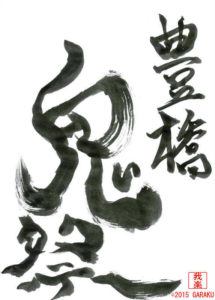 豊橋
鬼祭
我楽
©2015 GARAKU